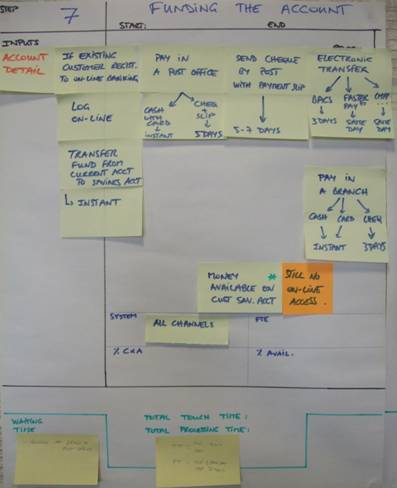 STEP 7 FUNDING THE ACCOUNT
START: END
INPUTS
ACCOUNT
DETAIL
IF EXISTING
CUSTOMER REGIST.
TO ON-LINE BANKING
LOG
ON-LINE
TRANSFER
FUND FROM
CURRENT ACCT
TO SAVINGS ACCT
INSTANT
PAY IN
A POST OFFICE
CASH
WITH
CARD
INSTANT
CHEQ
+
SLIP
5 DAYS
SEND CHEQUE
BY POST
WITH PAYMENT SLIP
5-7 DAYS
ELECTRONIC
TRANSFER
BACS
3 DAYS
FASTER
PAYT
SAME
DAY
...
SAME
DAY
PAY IN
A BRANCH
CASH CARD CHEQ
INSTANT 3 DAYS
MONEY *
AVAILABLE ON
CUST SAV. ACCT
STILL NO
ON-LINE
ACCESS.
SYSTEM
ALL CHANNELS
FTE
% C&A
% AVAIL.
WAITING
TIME
TOTAL TOUCH TIME:
TOTAL PROCESSING TIME: